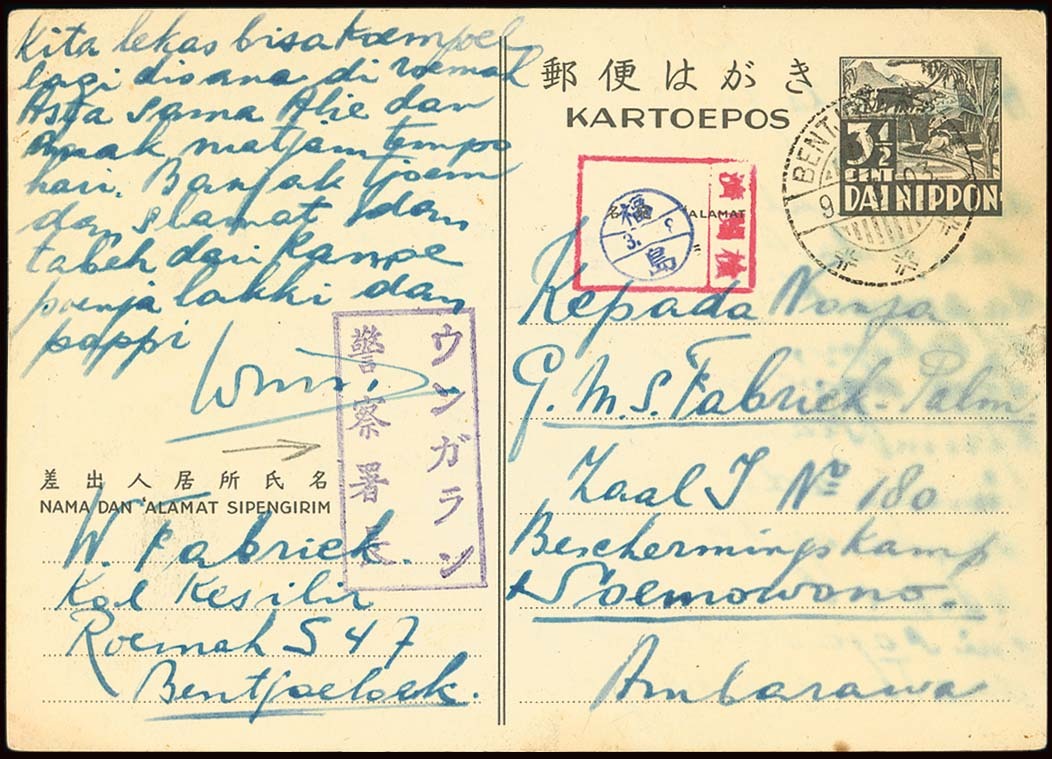 Kita lekas bisa koempoel
lagi disana di roemah
Asta sama Alie dan
Anak matjam tempo
hari. Banjak tjoem
dan slamat dan
tabeh dari Kampe
poenja lakki dan
pappi
ウンガラン
警察署長
差出人居所氏名
NAMA DAN 'ALAMAT SIPENGIRIM
W. Fabriek.
Kesilir
Roemah S 47
Bentjoeloek.
郵便はがき
KARTOEPOS
3 1/2
CENT
DAI NIPPON
BENT
9 03
'ALAMAT
福
3.
島
検閲済
Kepada Nonja
G. M. S. Fabriek-Palm
Zaal I No 180
Beschermingskamp
Soemowono.
Ambarawa